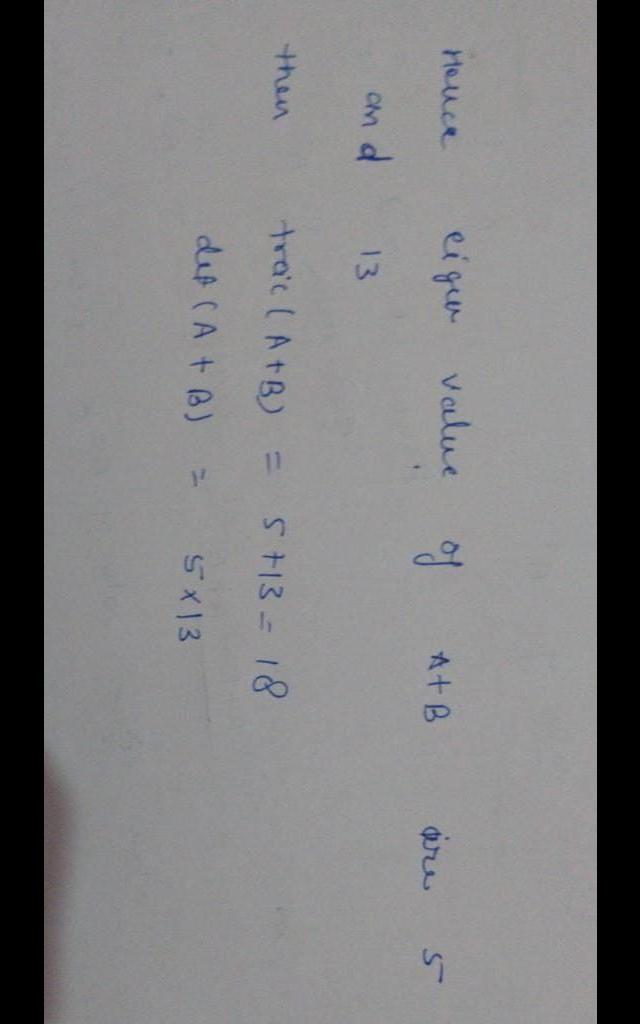 Hence eigen value of A+B are 5
and 13
then trac(A+B) = 5+13 = 18
det(A+B) = 5x13